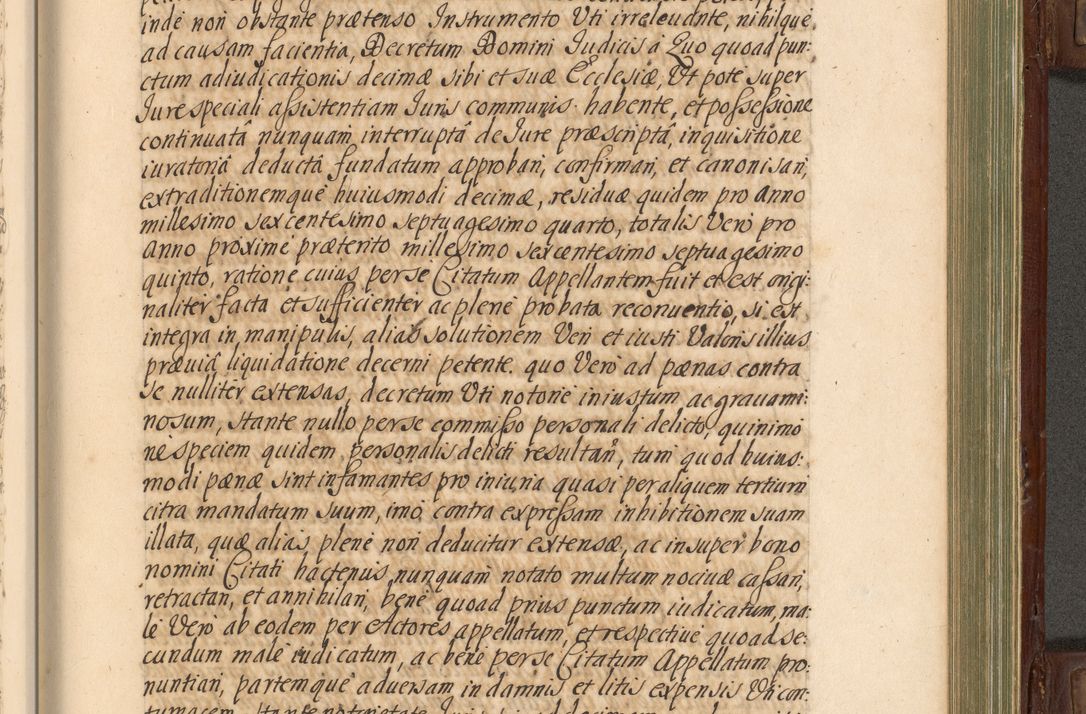 indè non obstante prætenso Instrumento Uti irreleuante, nihilquè
ad causam facientia, Decretum Domini Iudicis à Quo quoad pun:
ctum adiudicationis decimæ sibi et suæ Ecclesiæ, Ut potè super
Iure speciali assistentiam Iuris communis habente, et possessione
continuatâ nunquam interruptâ de Iure præscriptâ, inquisitione
iuratoriâ deductâ fundatum approbari, confirmari, et canonisari,
extraditionemquè huiusmodi decimæ, residuæ quidem pro Anno
millesimo sexcentesimo septuagesimo quarto, totalis Verò pro
anno proximè præterito millesimo sexcentesimo septuagesimo
quinto, rationè cuius per se Citatum Appellantem fuit et est origi:
naliter facta et sufficienter ac plenè probata reconuentio, si est
integra in manipulis, alias solutionem Veri et iusti Valoris illius
præuiâ liquidatione decerni petente. quo Verò ad pœnas contra
se nulliter extensas, decretum Uti notoriè iniustum ac grauami:
nosum, stante nullo per se commisso personali delicto, quinimo
nè speciem quidem personalis delicti resultari, tum quod huius:
modi pœnæ sint infamantes pro iniuria quasi per aliquem tertium
citra mandatum suum, imò contra expressam inhibitionem suam
illata, quæ alias plenè non deducitur extensæ, ac insuper bono
nomini Citati hactenus nunquam notato multum nociuæ cassari,
retractari, et annihilari, benè quoad prius punctum iudicatum, ma:
lè Verò ab eodem per Actores appellatum, et respectiuè quoad se:
cundum malè iudicatum, ac benè per se Citatum Appellatum pro:
nuntiari, partemquè aduersam in damnis et litis expensis Uti con:
tumacem